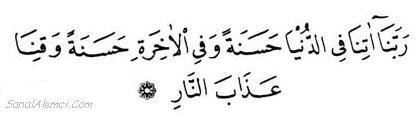 رَبَّنَآ اٰتِنَا فِي الدُّنْيَا حَسَنَةً وَفِي الْاٰخِرَةِ حَسَنَةً وَقِنَا
عَذَابَ النَّارِ
SanalAlemci.Com